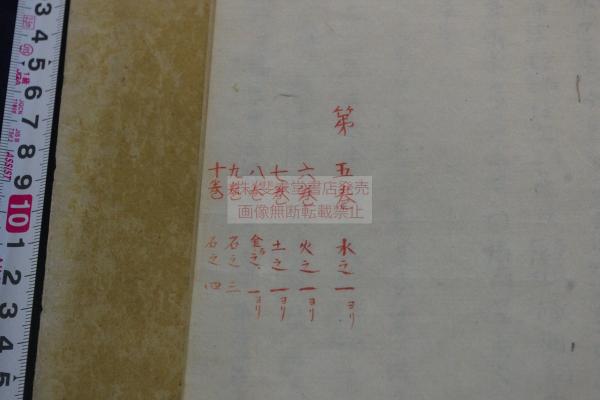 第五巻 水之一ヨリ
六巻 火之一ヨリ
七巻 土之一ヨリ
八巻 金之一ヨリ
九巻 石之三
十巻 石之四
画像無断転載禁止
3 4 5 6 7 8 9 10 1 2 3 4 5